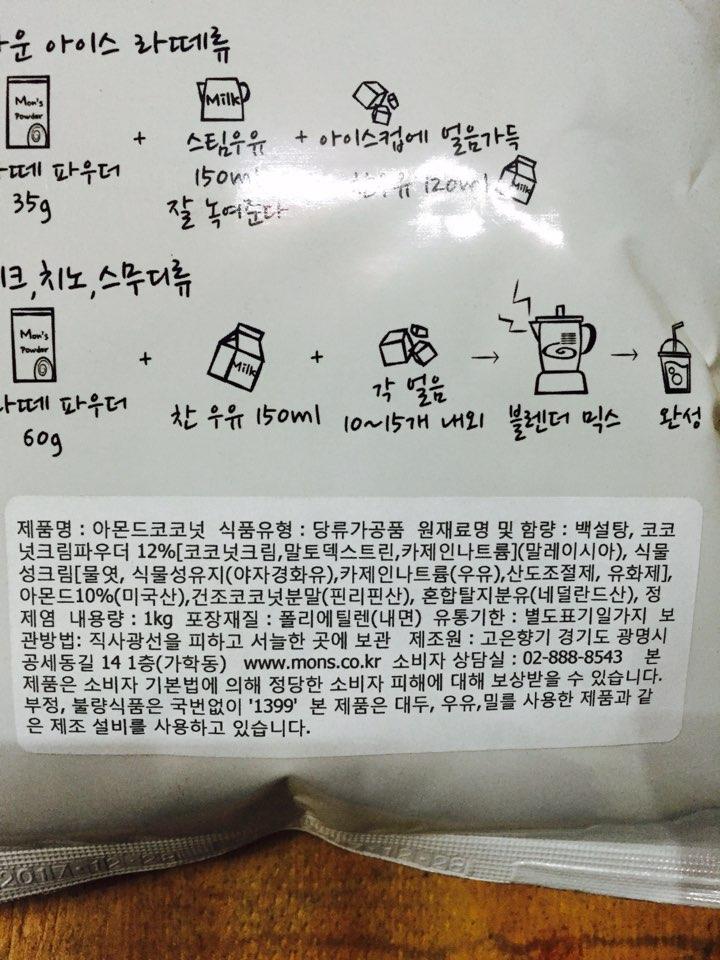 운 아이스 라떼류
Mon's
Powder
Milk
+ 스팀우유 + 아이스컵에 얼음가득
떼 파우더 150ml 찬우유 120ml Milk
35g 잘 녹여준다
크,치노,스무디류
Mon's
Powder
+ Milk +
각 얼음
라떼 파우더 찬 우유 150ml 10~15개 내외 블렌더 믹스 완성
60g
제품명 : 아몬드코코넛 식품유형 : 당류가공품 원재료명 및 함량 : 백설탕, 코코
넛크림파우더 12%[코코넛크림,말토덱스트린,카제인나트륨](말레이시아), 식물
성크림[물엿, 식물성유지(야자경화유),카제인나트륨(우유),산도조절제, 유화제],
아몬드10%(미국산),건조코코넛분말(핀리핀산), 혼합탈지분유(네덜란드산), 정
제염 내용량 : 1kg 포장재질 : 폴리에틸렌(내면) 유통기한 : 별도표기일까지 보
관방법: 직사광선을 피하고 서늘한 곳에 보관 제조원 : 고은향기 경기도 광명시
공세동길 14 1층(가학동) www.mons.co.kr 소비자 상담실 : 02-888-8543 본
제품은 소비자 기본법에 의해 정당한 소비자 피해에 대해 보상받을 수 있습니다.
부정, 불량식품은 국번없이 '1399' 본 제품은 대두, 우유,밀를 사용한 제품과 같
은 제조 설비를 사용하고 있습니다.